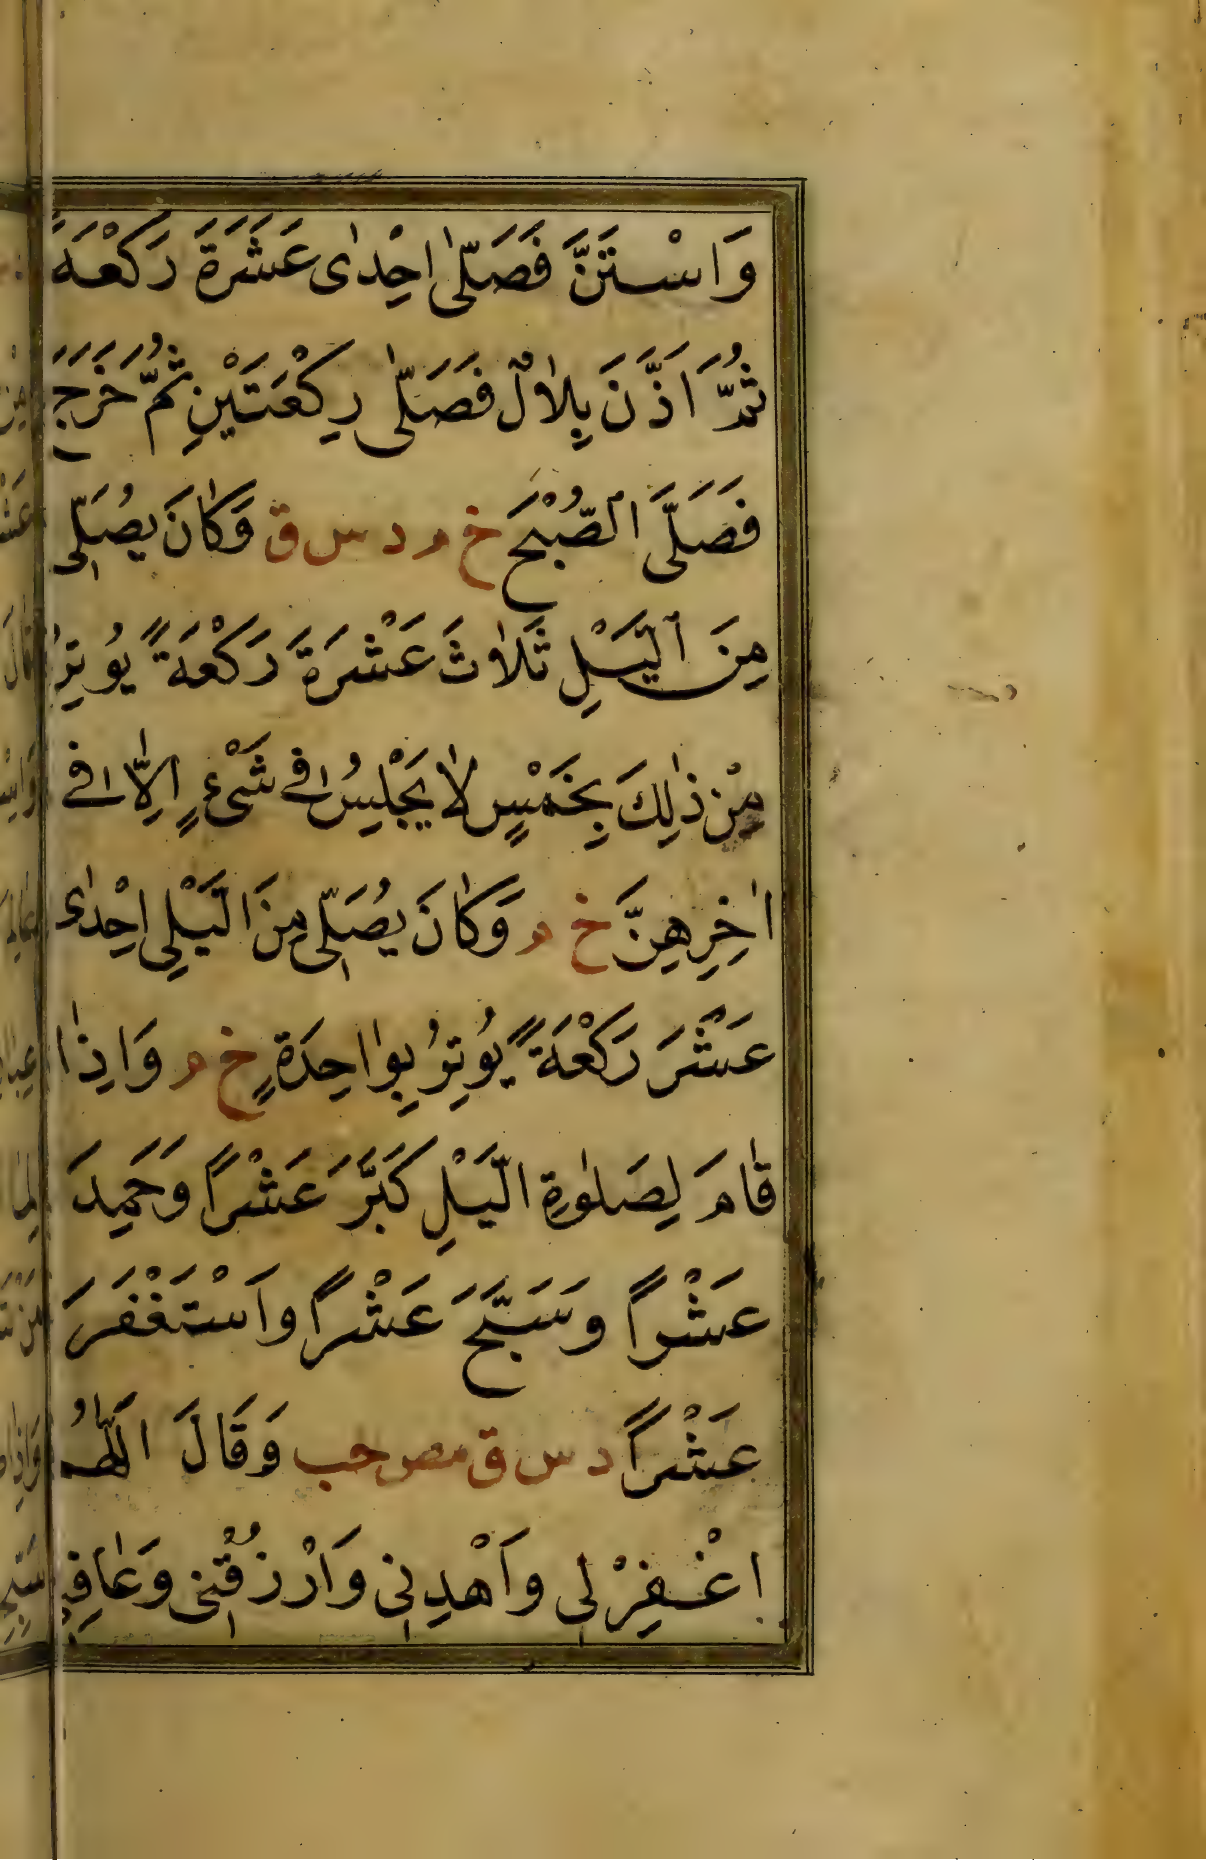 وَاسْتَنَّ فَصَلّٰى اِحْدٰى عَشَرَةَ رَكْعَةً
ثُمَّ اَذَّنَ بِلاٰلٌ فَصَلّٰى رِكْعَتَيْنِ ثُمَّ خَرَجَ
فَصَلَّى الصُّبْحَ خ م د س ق وَكَانَ يُصَلّٖى
مِنَ الَّيْلِ ثَلٰاثَ عَشْرَةَ رَكْعَةً يُوتِرُ
مِنْ ذٰلِكَ بِخَمْسٍ لاٰ يَجْلِسُ فٖى شَىْءٍ اِلّاٰ فٖى
اٰخِرِهِنَّ خ م وَكَانَ يُصَلّٖى مِنَ الَّيْلِ اِحْدٰى
عَشَرَ رَكْعَةً يُوتِرُ بِوٰاحِدَةٍ خ م وَاِذٰا
قٰامَ لِصَلٰوةِ الَّيْلِ كَبَّرَ عَشْراً وَحَمِدَ
عَشْراً وَسَبَّحَ عَشْراً وَاَسْتَغْفَرَ
عَشْراً د س ق مص حب وَقَالَ اَللّٰهُمَّ
اِغْفِرْ لٖى وَاَهْدِنٖى وَارْزُقْنٖى وَعٰافِنٖى